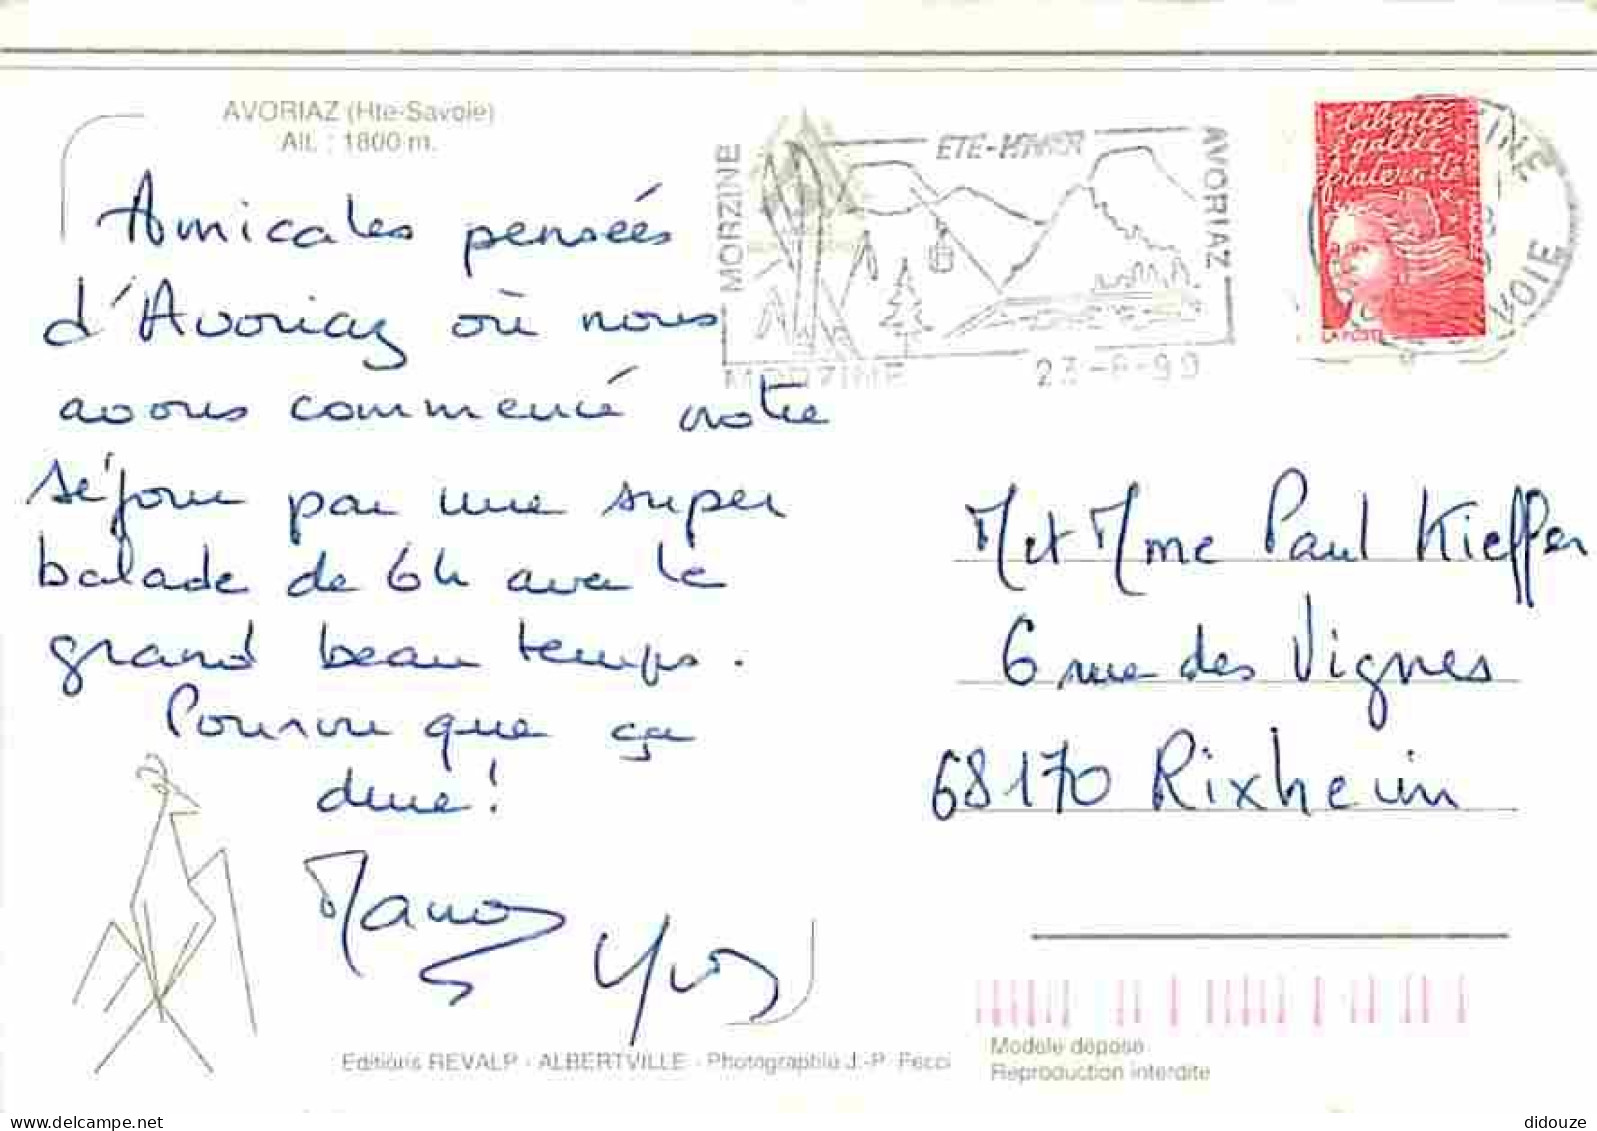 AVORIAZ (Hte-Savoie)
Alt. : 1800 m.
Amicales pensées
d'Avoriaz où nous
avons commencé notre
séjour par une super
balade de 6h avec le
grand beau temps.
Pourvu que ça
dure !
Yves
MORZINE
ETE-HIVER
AVORIAZ
MORZINE
Liberté
égalité
fraternité
LA POSTE
M et Mme Paul Kieffer
6 rue des Vignes
68170 Rixheim
Editions REVALP - ALBERTVILLE - Photographie J.-P. Fecci
Modèle déposé
Reproduction interdite
didouze